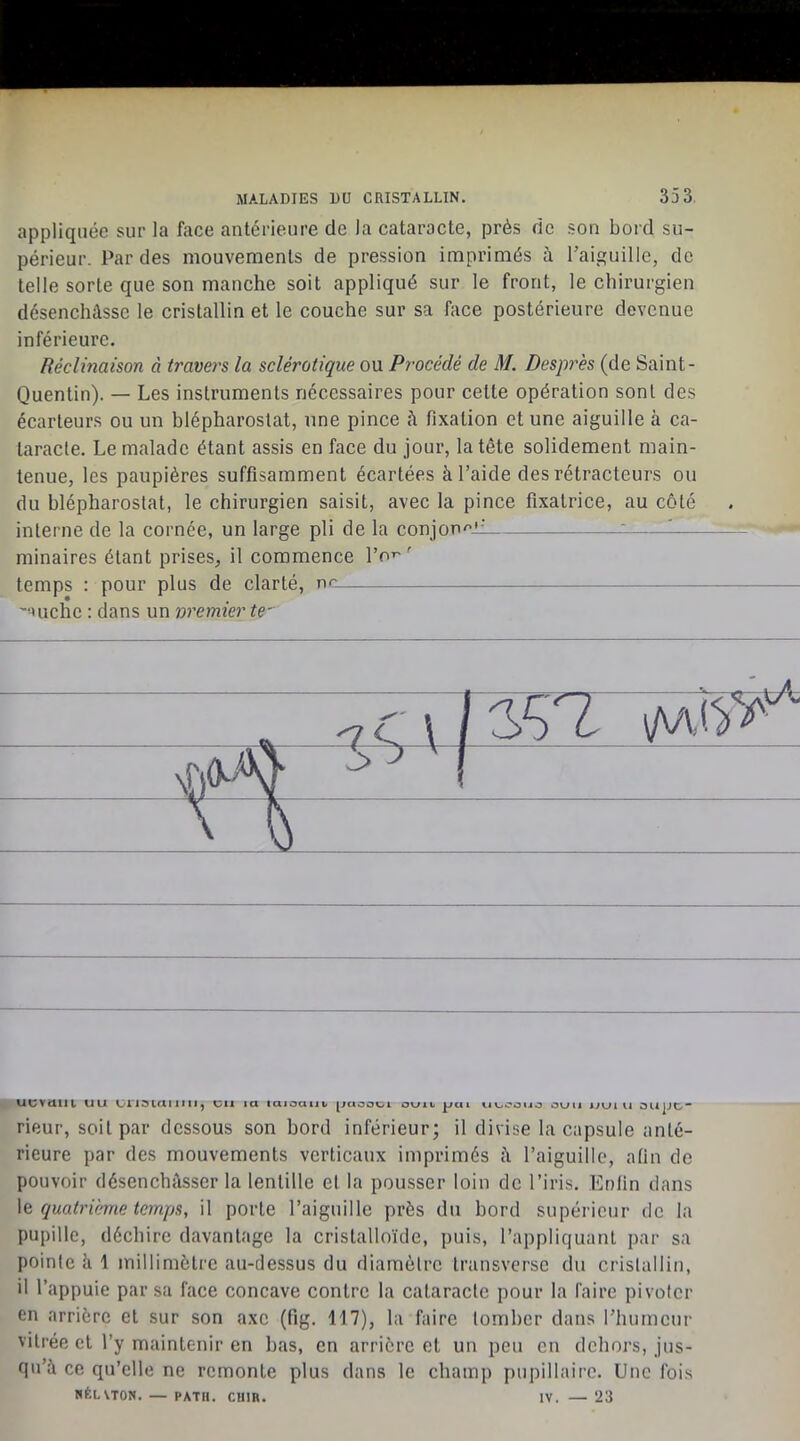 MALADIES DU CRISTALLIN. 353
appliquée sur la face antérieure de la cataracte, près de son bord su-
périeur. Par des mouvements de pression imprimés à l'aiguille, de
telle sorte que son manche soit appliqué sur le front, le chirurgien
désenchâsse le cristallin et le couche sur sa face postérieure devenue
inférieure.
Réclinaison à travers la sclérotique ou Procédé de M. Desprès (de Saint-
Quentin). — Les instruments nécessaires pour cette opération sont des
écarteurs ou un blépharostat, une pince à fixation et une aiguille à ca-
taracte. Le malade étant assis en face du jour, la tête solidement main-
tenue, les paupières suffisamment écartées à l'aide des rétracteurs ou
du blépharostat, le chirurgien saisit, avec la pince fixatrice, au côté
interne de la cornée, un large pli de la
minaires étant prises, il commence
temps : pour plus de clarté,
dans un premier
351/352
devant du cristallin, en la faisant passer soit par dessus son bord supé-
rieur, soit par dessous son bord inférieur; il divise la capsule anté-
rieure par des mouvements verticaux imprimés à l'aiguille, afin de
pouvoir désenchâsser la lentille et la pousser loin de l'iris. Enfin dans
le quatrième temps, il porte l'aiguille près du bord supérieur de la
pupille, déchire davantage la cristalloïde, puis, l'appliquant par sa
pointe à 1 millimètre au-dessus du diamètre transverse du cristallin,
il l'appuie par sa face concave contre la cataracte pour la faire pivoter
en arrière et sur son axe (fig. 117), la faire tomber dans l'humeur
vitrée et l'y maintenir en bas, en arrière et un peu en dehors, jus-
qu'à ce qu'elle ne remonte plus dans le champ pupillaire. Une fois
NÉLATON. — PATH. CHIR. IV. — 23